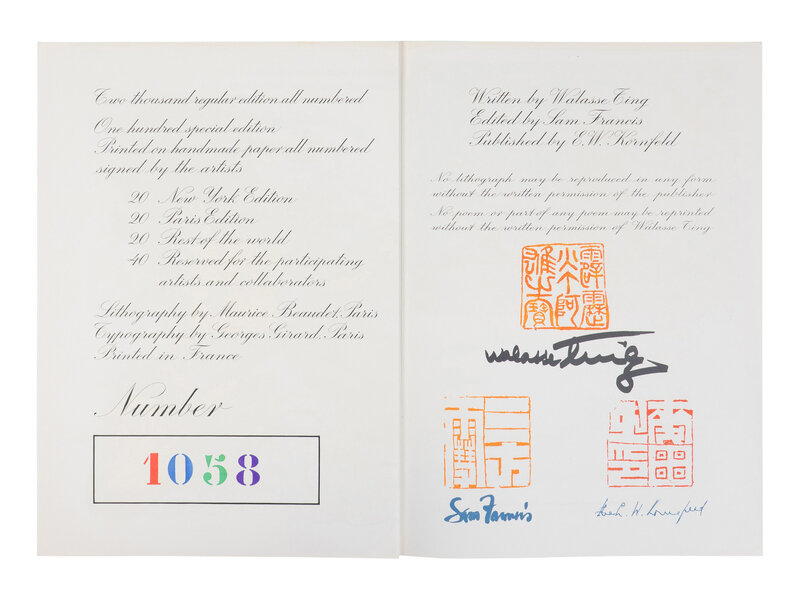 Two thousand regular edition all numbered
One hundred special edition
Printed on handmade paper all numbered
signed by the artists
20 New York Edition
20 Paris Edition
20 Rest of the world
40 Reserved for the participating
artists and collaborators
Lithography by Maurice Beaudet, Paris
Typography by Georges Girard, Paris
Printed in France
Number
1058
Written by Walasse Ting
Edited by Sam Francis
Published by E.W. Kornfeld
No lithograph may be reproduced in any form
without the written permission of the publisher
No poem or part of any poem may be reprinted
without the written permission of Walasse Ting
Walasse Ting
Sam Francis